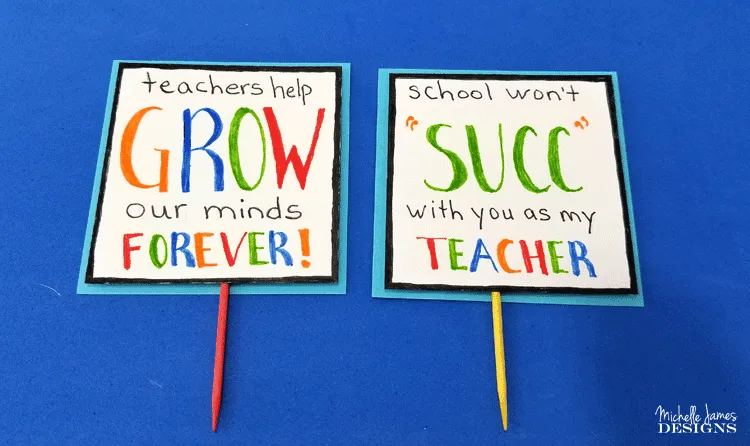 teachers help
GROW
our minds
FOREVER!
school won't
"SUCC"
with you as my
TEACHER
Michelle James
DESIGNS